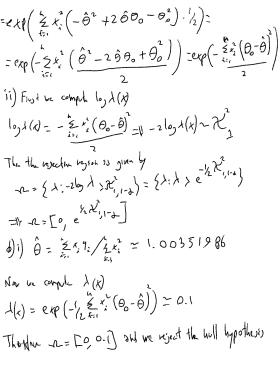 = exp( Σ_{i=1}^{n} x_i² (-θ̂² + 2θ̂θ₀ - θ₀²) · 1/2 ) =
= exp( - Σ_{i=1}^{n} x_i² (θ̂² - 2θ̂θ₀ + θ₀²) / 2 ) = exp( - Σ_{i=1}^{n} x_i² (θ₀ - θ̂)² / 2 )
ii) First we compute log λ(x)
log λ(x) = - Σ_{i=1}^{n} x_i² (θ₀ - θ̂)² / 2 ⇒ -2 log λ(x) ~ χ²_1
Then the rejection region is given by
Ω = { λ : -2 log λ > χ²_{1,1-α} } = { λ : λ > e^{-1/2 χ²_{1,1-α}} }
⇒ Ω = [0, e^{1/2 χ²_{1,1-α}}]
d) i) θ̂ = Σ_{i=1}^{n} x_i y_i / Σ_{i=1}^{n} x_i² ≃ 1.00351986
Now we compute λ(x)
λ(x) = exp( -1/2 Σ_{i=1}^{n} x_i² (θ₀ - θ̂)² ) ≃ 0.1
Therefore Ω = [0, 0.1] and we reject the null hypothesis